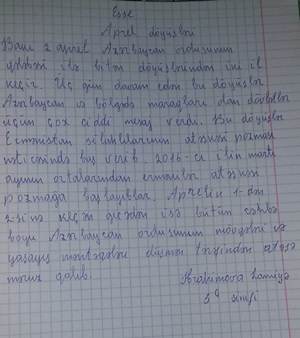 Esse
Aprel döyüşləri
Bakı 2 aprel Azərbaycan ordusunun
qələbəsi ilə bitən döyüşlərindən iki il
keçir. Üç gün davam edən bu döyüşlər
Azərbaycan və bölgədə maraqları olan dövlətlər
üçün çox ciddi mesaj verdi. Bu döyüşlər
Ermənistan silahlılarının atəşkəsi pozması
nəticəsində baş verib. 2016-cı ilin mart
ayının ortalarından ermənilər atəşkəsi
pozmağa başlayıblar. Aprelin 1-dən
2-si nə keçən gecədən isə bütün cəbhə
boyu Azərbaycan ordusunun mövqeləri və
yaşayış məntəqələri düşmən tərəfindən atəşə
məruz qalıb.
İbrahimova Lamiyə
5 sinfi